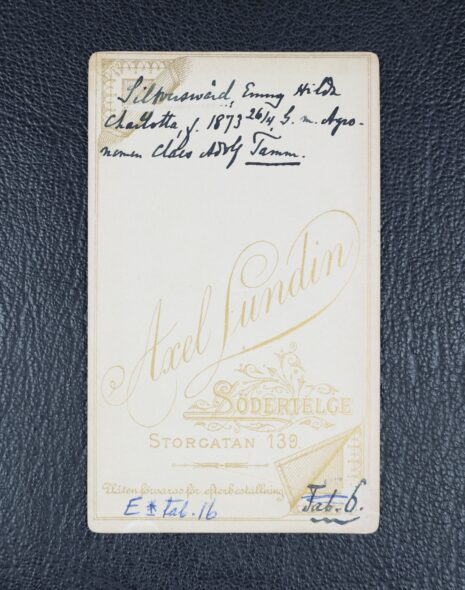 Silfversvärd, Emmy Hilda
Charlotta, f. 1873 26/4, G. m. Agro-
nomen Claes Adolf Tamm.
Axel Lundin
SÖDERTELGE
STORGATAN 139
Plåten förvaras för efterbeställning
E * tab. 16
Tab. 6.